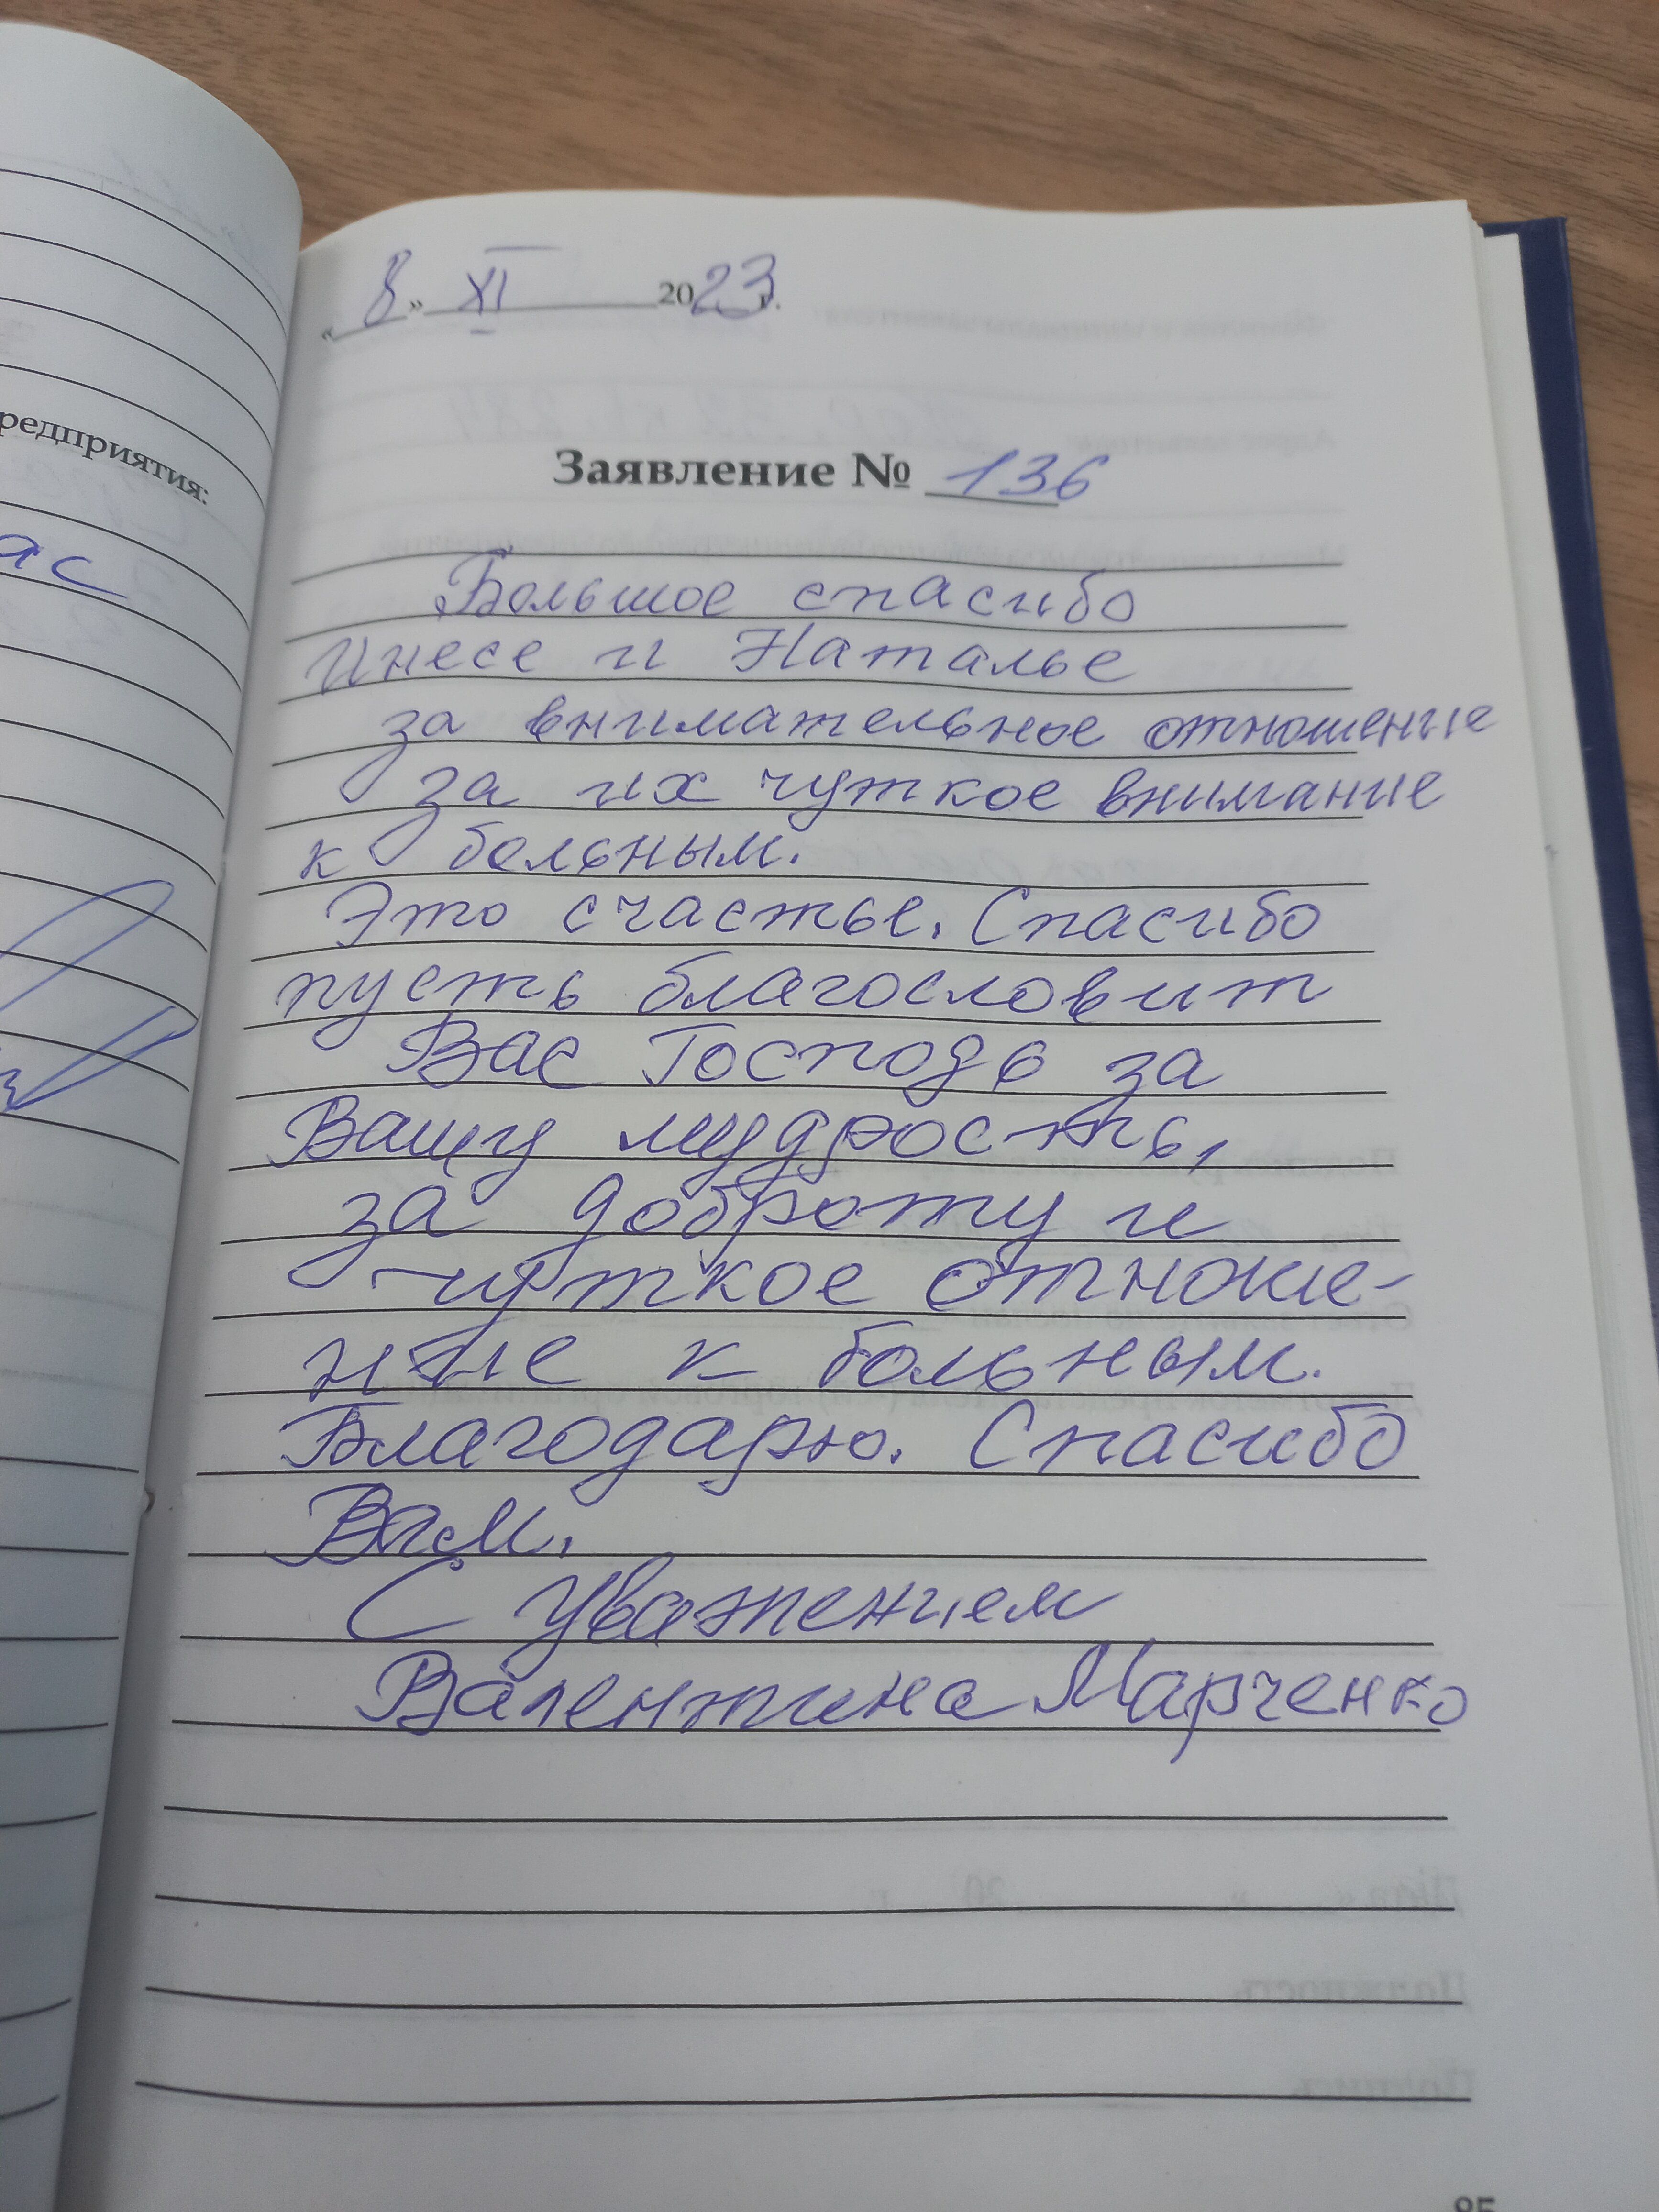 «8» XI 2023 г.
Заявление № 136
Большое спасибо
Инесе и Наталье
за внимательное отношение
за их чуткое внимание
к больным.
Это счастье. Спасибо
пусть благословит
Вас Господь за
Вашу мудрость,
за доброту и
чуткое отноше-
ние к больным.
Благодарю. Спасибо
Вам.
С уважением
Валентина Марченко
85
редприятия:
ас